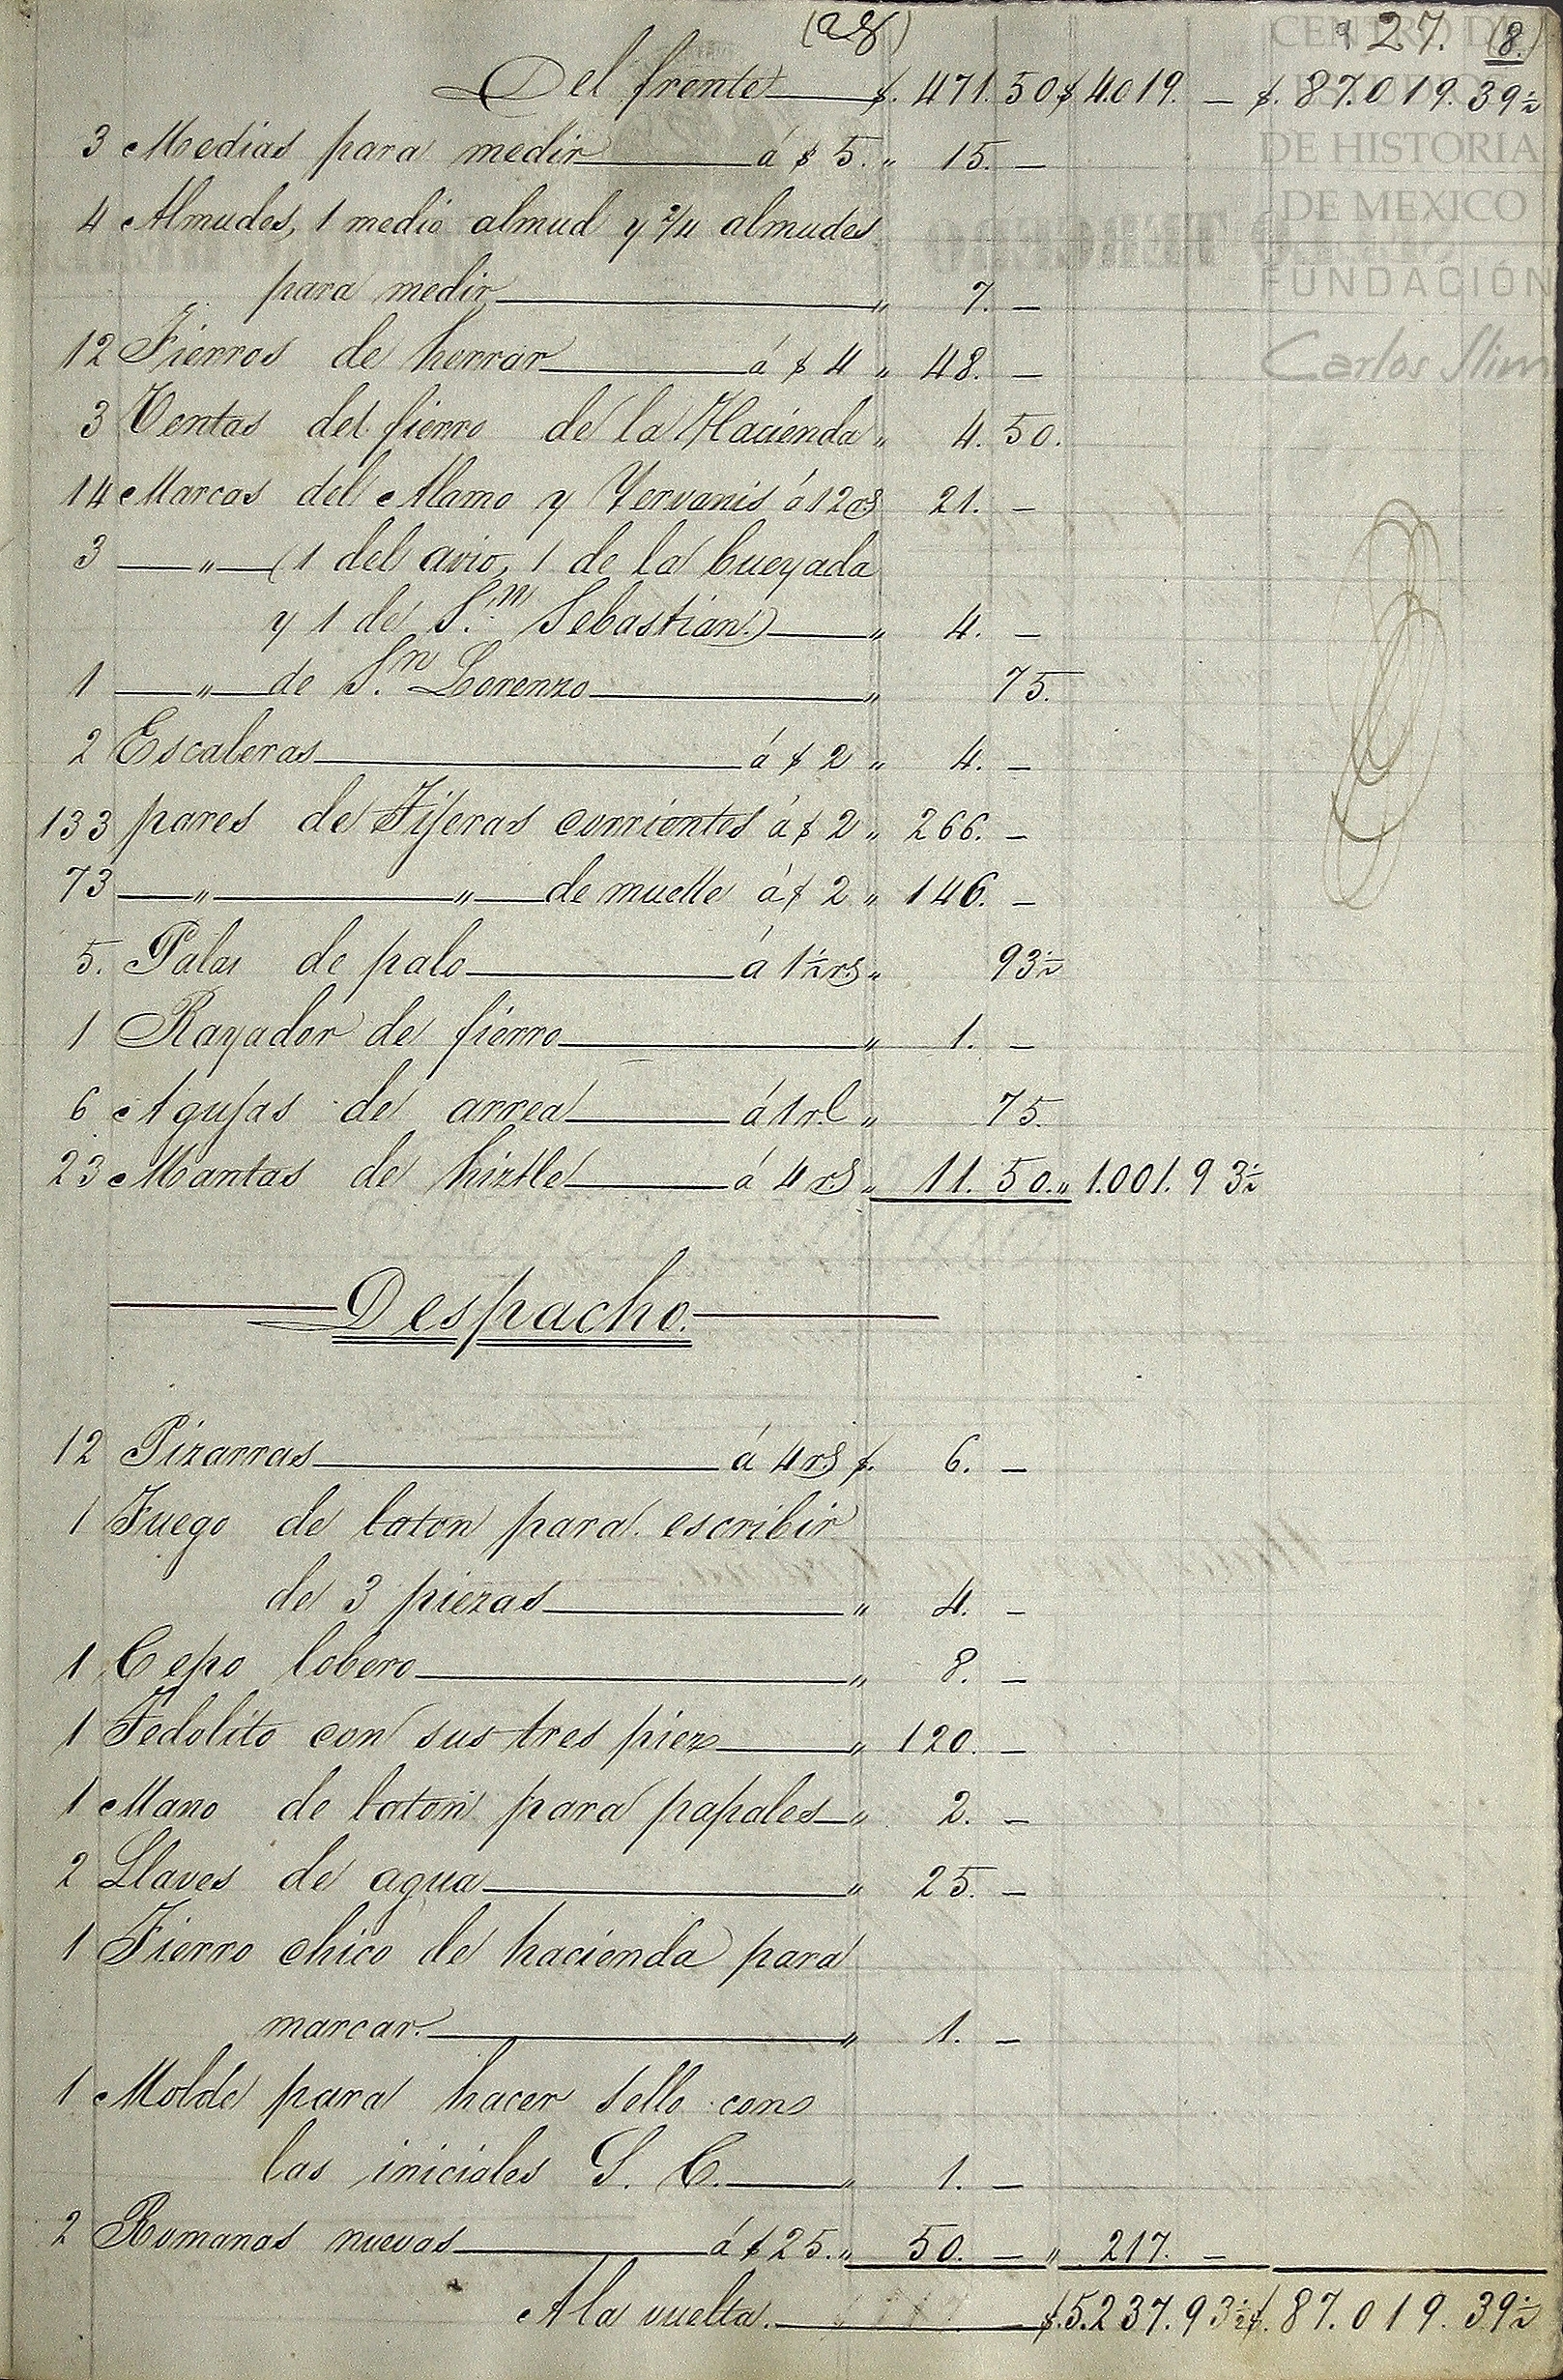 27. (8.)
Del frente $. 471. 50 $ 4.019. — $. 87.019. 39½
3 Medias para medir á $ 5. „ 15. —
4 Almudes, 1 medio almud y 2/4 almudes
para medir „ 7. —
12 Fierros de herrar á $ 4 „ 48. —
3 Ventas del fierro de la Hacienda „ 4. 50.
14 Marcas del Alamo y Yervanis á 12 rs 21. —
3 — „ — (1 del avio, 1 de la bueyada
y 1 de S.n Sebastian.) „ 4. —
1 — „ — de S.n Lorenzo „ 75.
2 Escaleras á $ 2 „ 4. —
133 pares de Tijeras corrientes á $ 2 „ 266. —
73 — „ — „ — de muelle á $ 2 „ 146. —
5. Palas de palo á 1½ rs „ 93½
1 Rayador de fierro „ 1. —
6 Agujas de arrea á 1 rl „ 75.
23 Mantas de hiztle á 4 rs „ 11. 50. „ 1.001. 93½
Despacho.
12 Pizarras á 4 rs $. 6. —
1 Juego de laton para escribir
de 3 piezas „ 4. —
1 Cepo lobero „ 8. —
1 Tedolito con sus tres piezs „ 120. —
1 Mano de laton para papales „ 2. —
2 Llaves de agua „ 25. —
1 Fierro chico de hacienda para
marcar. „ 1. —
1 Molde para hacer sello con
las iniciales S. C. „ 1. —
2 Romanas nuevas á $ 25. „ 50. — „ 217. —
A la vuelta. $. 5.237. 93½ $. 87.019. 39½
CENTRO DE
ESTUDIOS
DE HISTORIA
DE MEXICO
FUNDACIÓN
Carlos Slim